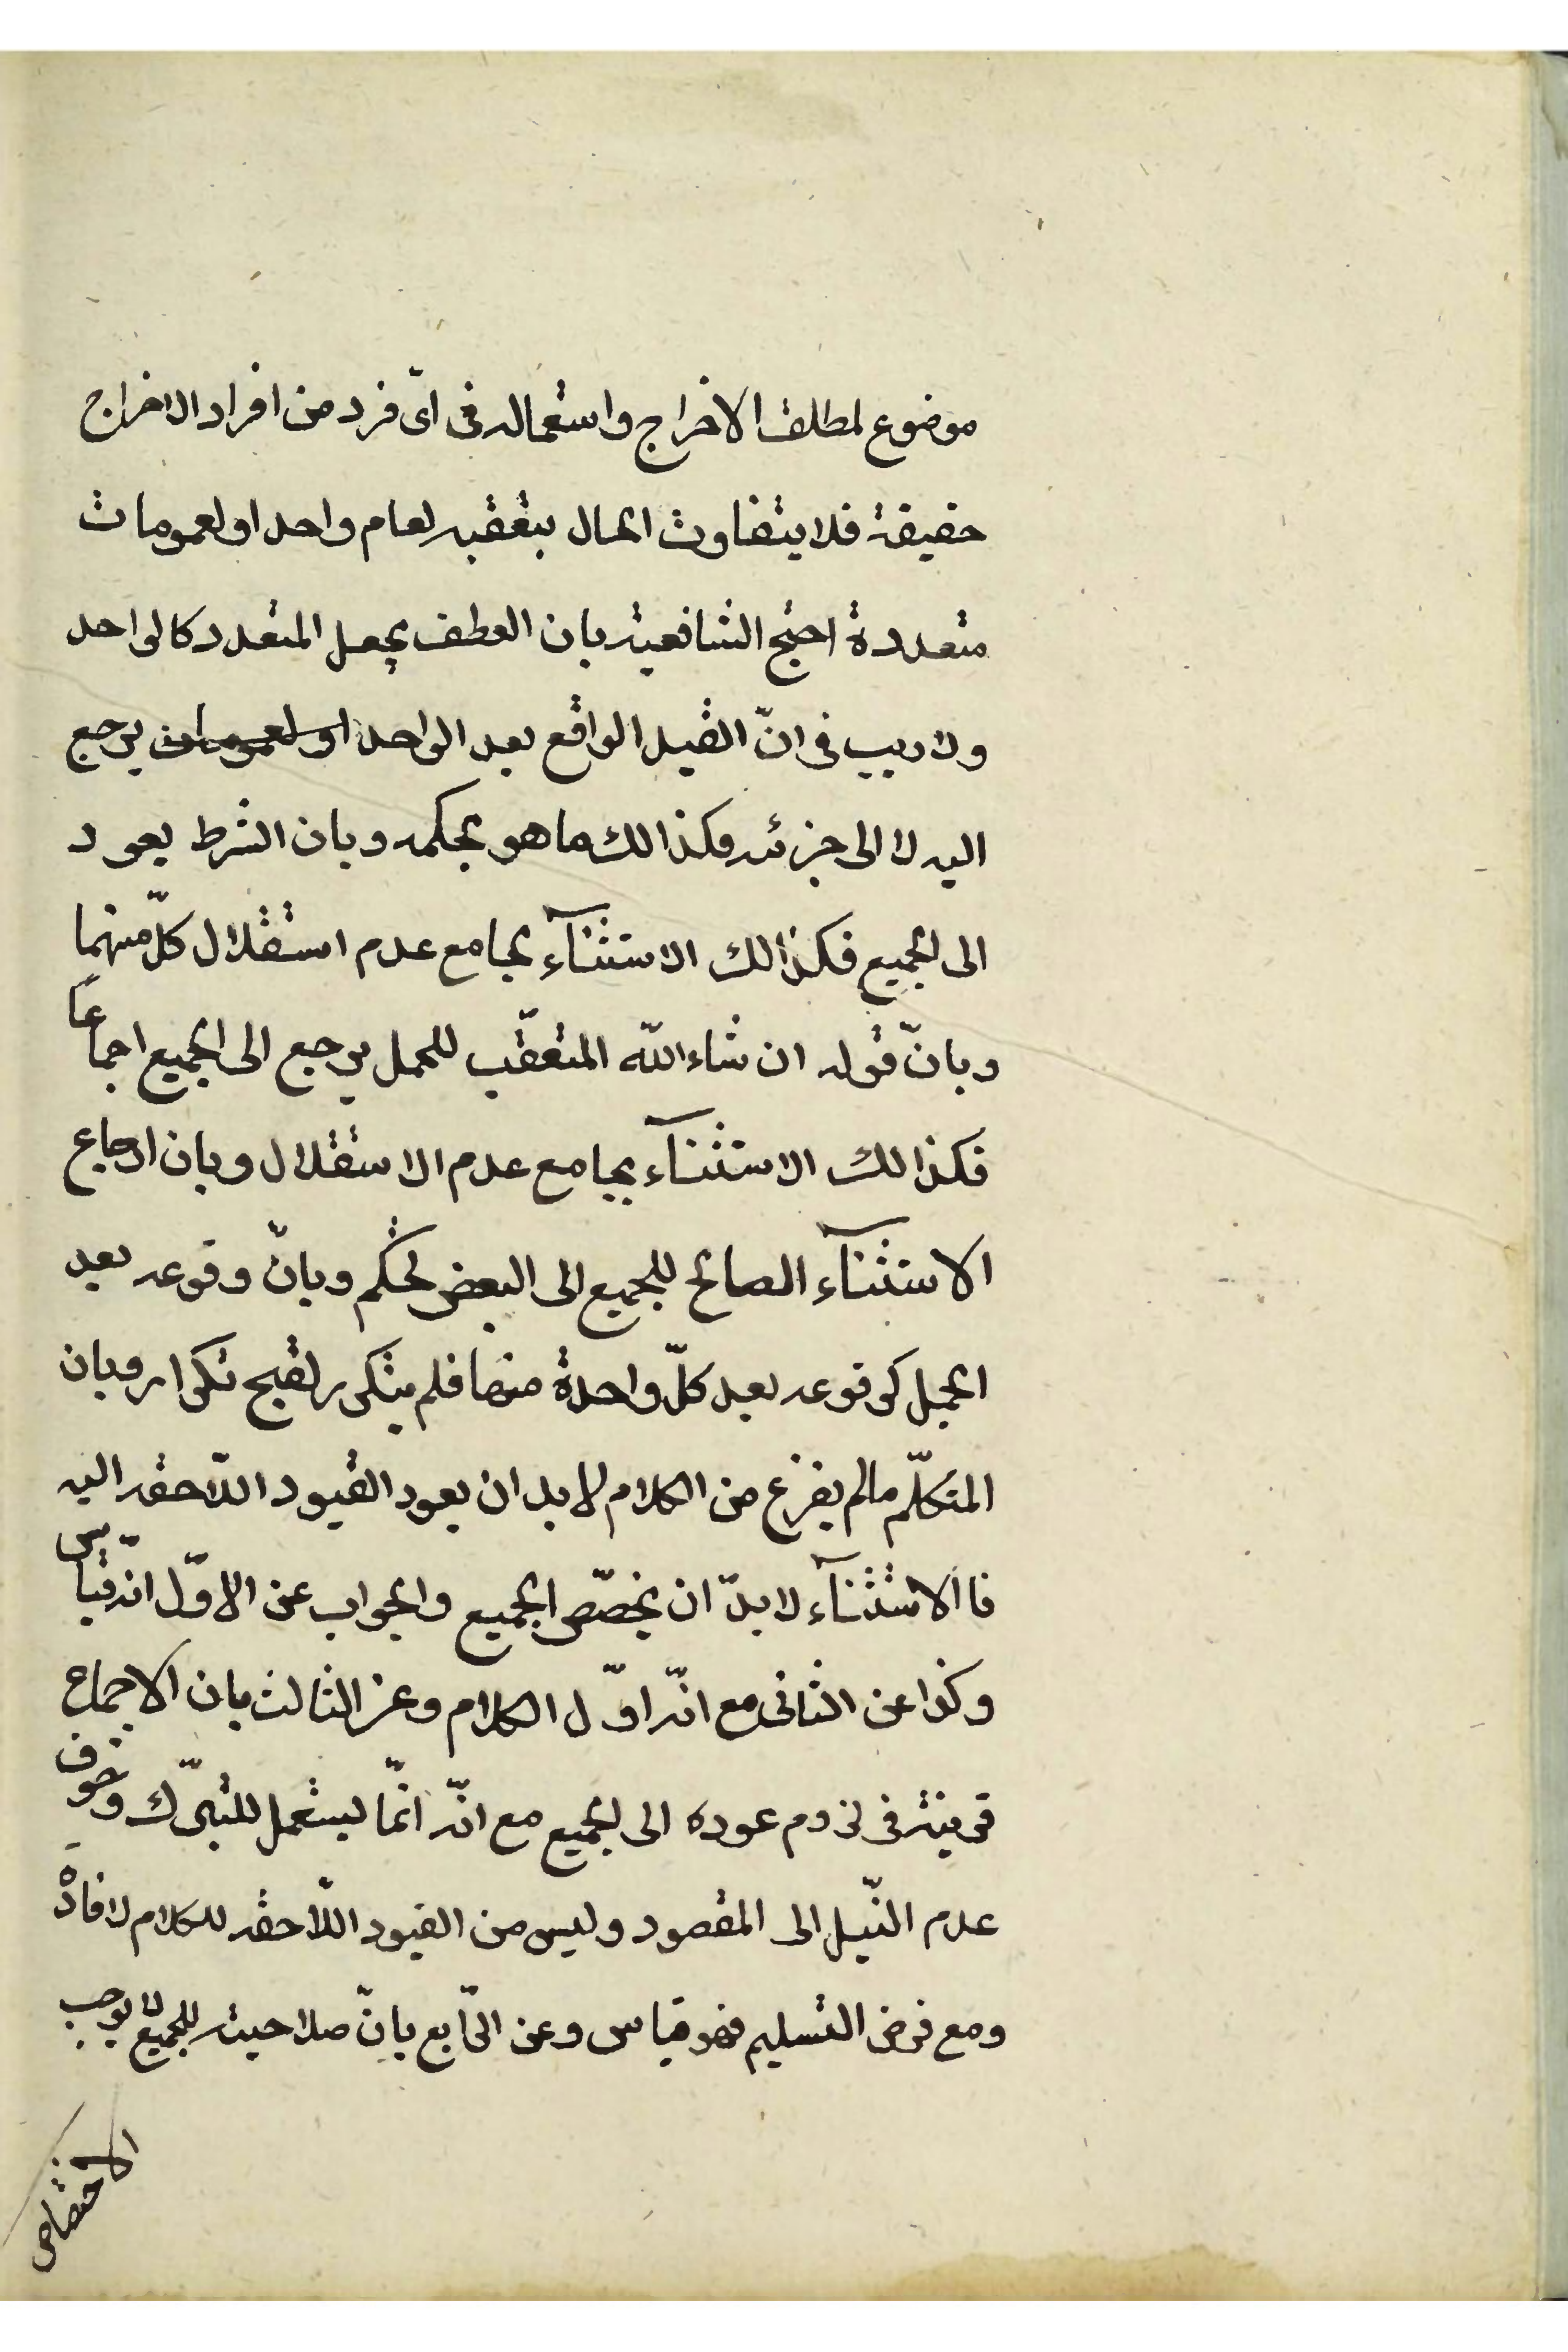 موضوع لمطلق الاخراج واستعماله فى اىّ فرد من افراد الاخراج
حقيقة فلا يتفاوت الحال بتعقبه لعام واحد او لعمومات
متعددة احتج الشافعية بان العطف يجعل المتعدد كالواحد
ولا ريب فى انّ القيد الواقع بعد الواحد او لعمومات يرجع
اليه لا الى جزئه وكذالك ما هو بحكمه وبان الشرط يعود
الى الجميع فكذالك الاستثنآء بجامع عدم استقلال كلّ منهما
وبانّ قوله ان شاء اللّه المتعقّب للجمل يرجع الى الجميع اجماعًا
فكذالك الاستثنآء بجامع عدم الاستقلال وبان ارجاع
الاستثنآء الصالح للجميع الى البعض تحكم وبانّ وقوعه بعد
الجمل كوقوعه بعد كلّ واحدة منها فلم يتكرر لقبح تكرار وبان
المتكلّم مالم يفرغ من الكلام لابد ان يعود القيود اللاحقه اليه
فاالاستثنآء لابدّ ان يخصّص الجميع والجواب عن الاوّل انّه قياس
وكذا عن الثانى مع انّه اوّل الكلام وعن الثالث بان الاجماع
قرينة فى لزوم عوده الى الجميع مع انّه انّما يستعمل للتبرّك وخوف
عدم النّيل الى المقصود وليس من القيود اللّاحقه للكلام لافادة
ومع فرض التسليم فهو قياس وعن الرّابع بانّ صلاحيته للجميع لا يوجب
الاختصاص